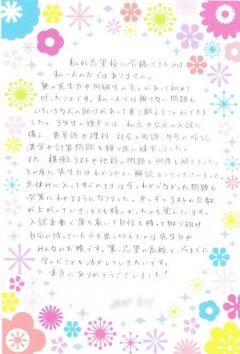 私が志望校に合格できたのは
私一人の力ではありません。
塾の先生方や同級生の支えがあって初めて
叶ったことです。私一人では解けない問題も
いろいろな人の助けがあって乗り越えることができま
した。3年生の後半では、私立や公立の入試に
備え、英単語や理科・社会の用語、年号の暗記、
漢字や計算問題を繰り返し練習しました。
また、模擬テストや他校の問題も何度も解きました。
その度に先生方はわかりやすい解説をしてくださいました。
夏休みに入ってすぐのときは全くわからなかった問題も
次第にわかるようになりました。少しずつテストの点数
が上がっていき、とても嬉しかったのを覚えています。
入試本番で落ち着いて自信を持って取り組み
自分の持っていた力を出し切れたのは先生方や
みんなのお陰です。第一志望の高校で、今までに
学んだことを活かしていきたいです。
本当にありがとうございました!